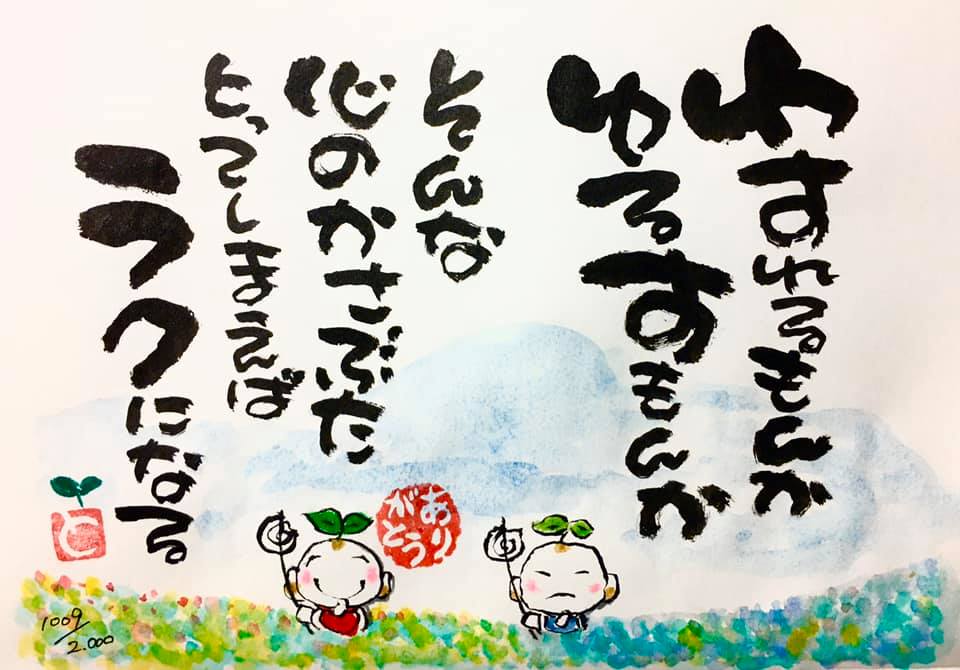 わすれるもんか
ゆるすもんか
そんな
心のかさぶた
とってしまえば
ラクになる
あり
がとう
1009/2.000